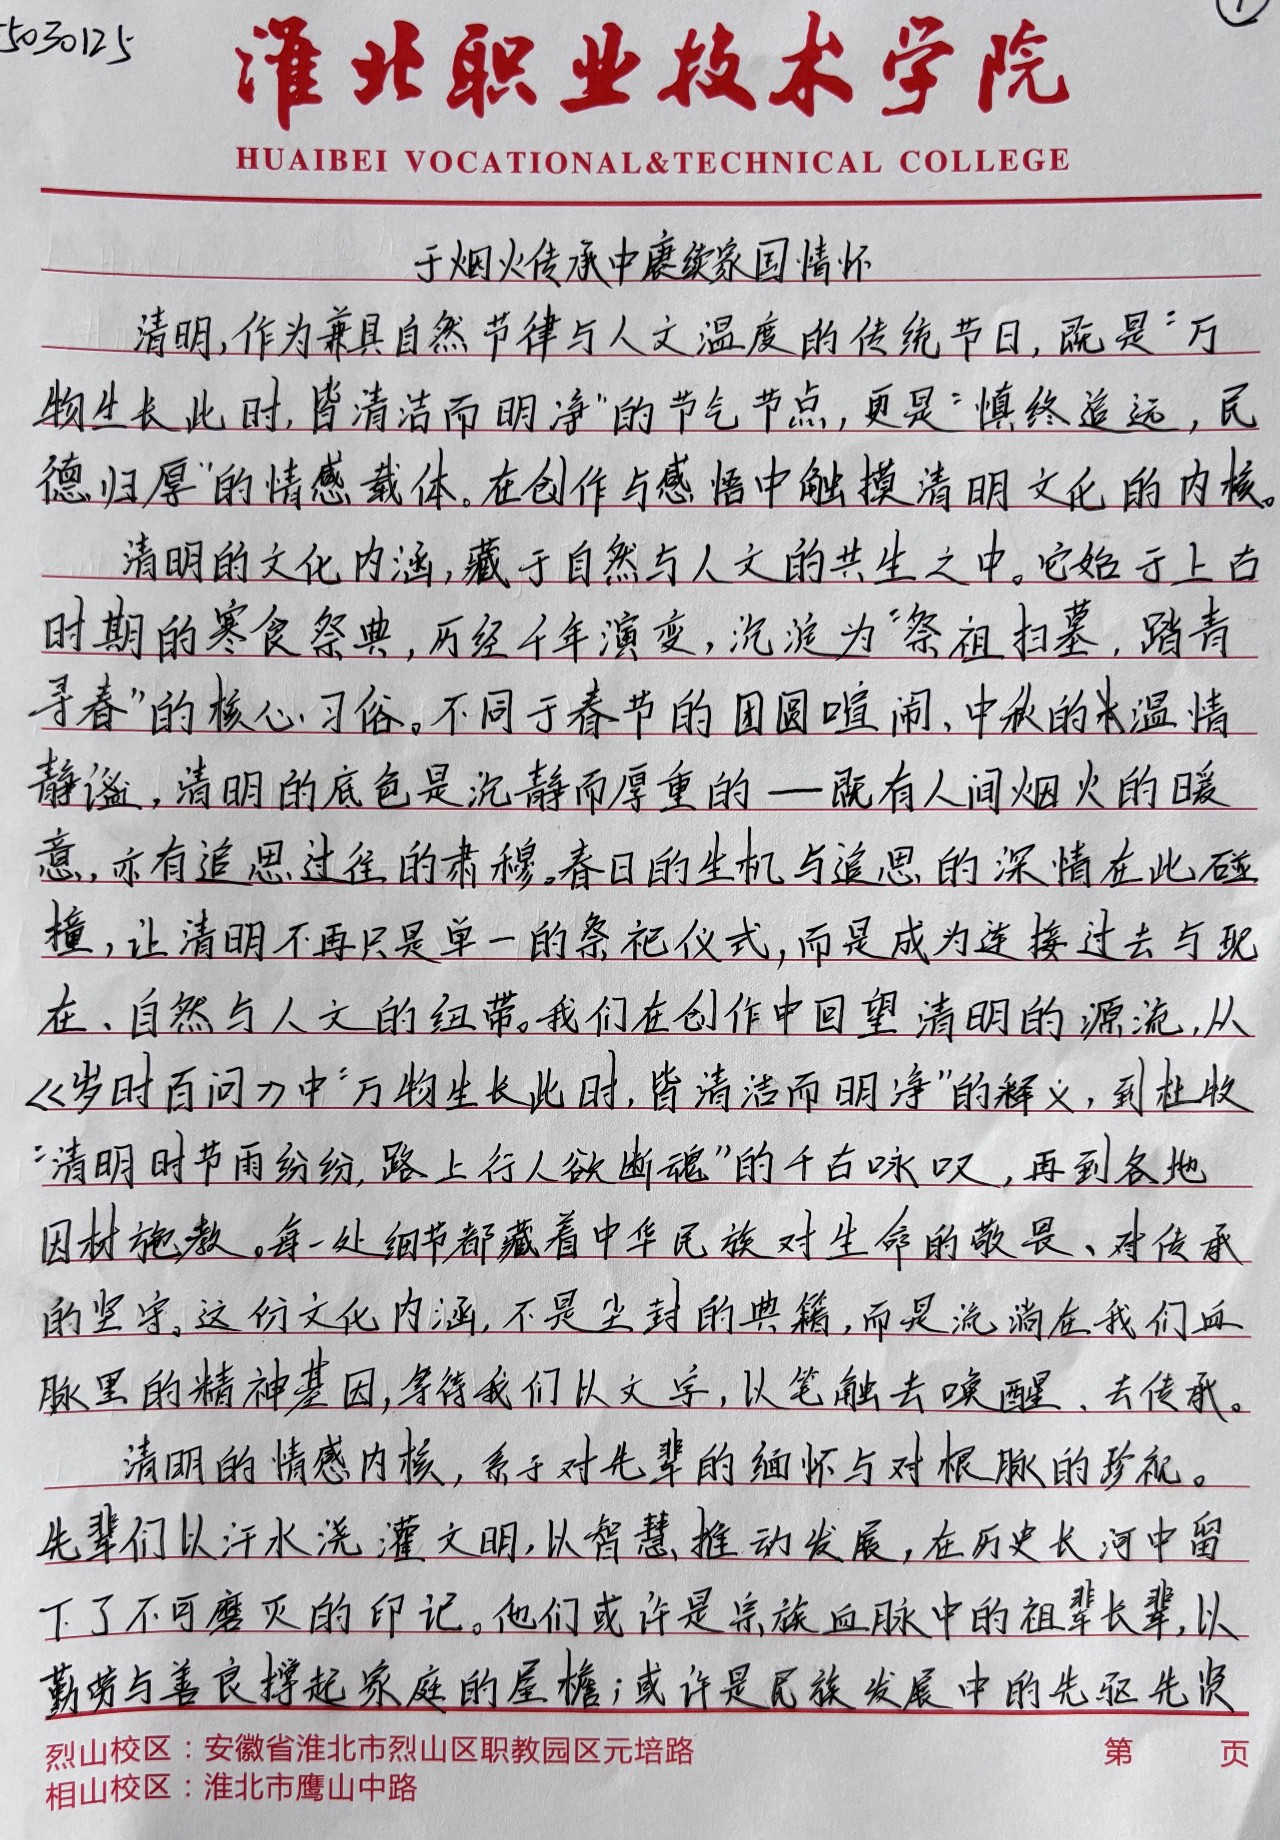 5030125
1
淮北职业技术学院
HUAIBEI VOCATIONAL&TECHNICAL COLLEGE
于烟火传承中赓续家国情怀
清明,作为兼具自然节律与人文温度的传统节日,既是“万
物生长此时,皆清洁而明净”的节气节点,更是“慎终追远,民
德归厚”的情感载体。在创作与感悟中触摸清明文化的内核。
清明的文化内涵,藏于自然与人文的共生之中。它始于上古
时期的寒食祭典,历经千年演变,沉淀为“祭祖扫墓,踏青
寻春”的核心习俗。不同于春节的团圆喧闹、中秋的温情
静谧,清明的底色是沉静而厚重的—既有人间烟火的暖
意,亦有追思过往的肃穆。春日的生机与追思的深情在此碰
撞,让清明不再只是单一的祭祀仪式,而是成为连接过去与现
在、自然与人文的纽带。我们在创作中回望清明的源流,从
《岁时百问》中“万物生长此时,皆清洁而明净”的释义,到杜牧
“清明时节雨纷纷,路上行人欲断魂”的千古咏叹,再到各地
因材施教。每一处细节都藏着中华民族对生命的敬畏、对传承
的坚守。这份文化内涵,不是尘封的典籍,而是流淌在我们血
脉里的精神基因,等待我们以文字,以笔触去唤醒、去传承。
清明的情感内核,系于对先辈的缅怀与对根脉的珍视。
先辈们以汗水浇灌文明,以智慧推动发展,在历史长河中留
下了不可磨灭的印记。他们或许是宗族血脉中的祖辈长辈,以
勤劳与善良撑起家庭的屋檐;或许是民族发展中的先驱先贤
烈山校区:安徽省淮北市烈山区职教园区元培路
第 页
相山校区:淮北市鹰山中路